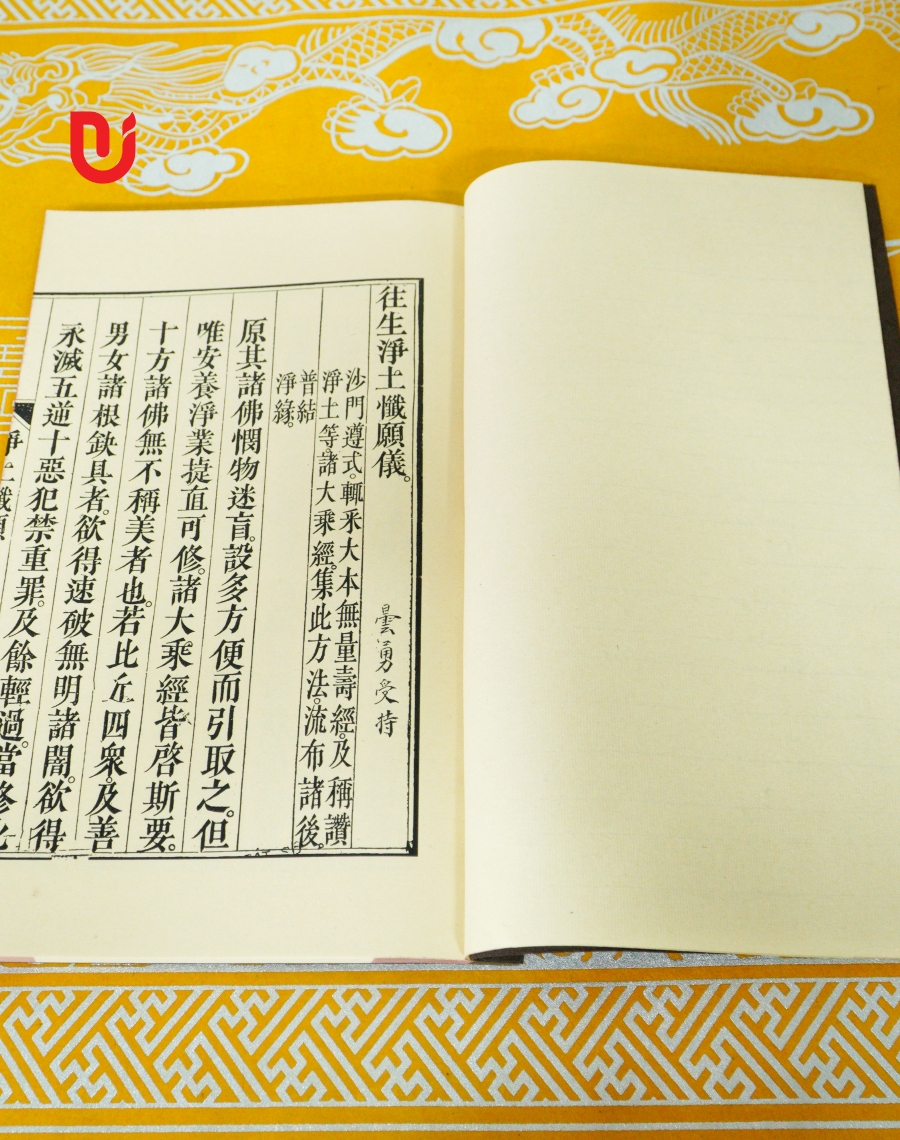 往生淨土懺願儀。
曇勇受持
沙門遵式。輒采大本無量壽經。及稱讚
淨土等諸大乘經。集此方法。流布諸後。
普結
淨緣。
原其諸佛憫物迷盲。設多方便而引取之。但
唯安養淨業㨗直可修。諸大乘經皆啓斯要。
十方諸佛無不稱美者也。若比丘四衆。及善
男女諸根鈌具者。欲得速破無明諸闇。欲得
永滅五逆十惡犯禁重罪。及餘輕過。當修此